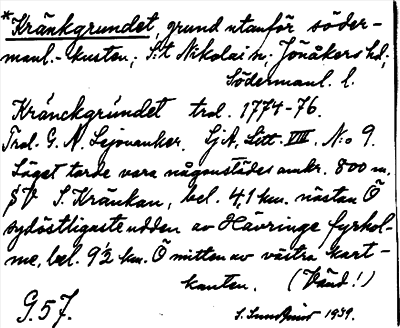 *Kränkgrundet, grund utanför söder-
manl.-kusten, S:t Nikolai sn. Jönåkers hd,
Södermanl. l.
Kránckgrúndet trol. 1774-76.
Trol. G. A. Lejonanker. SjA, Litt. VIII. N:o 9.
Läget torde vara någonstädes omkr. 800 m.
SV S. Kränkan, bel. 4,1 km. nästan Ö
sydöstligaste udden av Hävringe fyrhol-
me, bel. 9½ km. Ö mitten av västra kart-
kanten. (Vänd!)
G. 57. S. 1939.